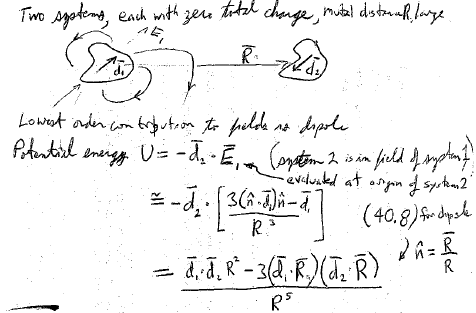 Two systems, each with zero total charge, mutual distance R, large
E̅₁
d̅₁ R̅ d̅₂
Lowest order contribution to fields is dipole
Potential energy U = -d̅₂ · E̅₁ (system 2 is in field of system 1)
evaluated at origin of system 2
≅ -d̅₂ · [3(n̂·d̅₁)n̂ - d̅₁ / R³] (40.8) for dipole
n̂ = R̅/R
= d̅₁·d̅₂ R² - 3(d̅₁·R̅)(d̅₂·R̅) / R⁵